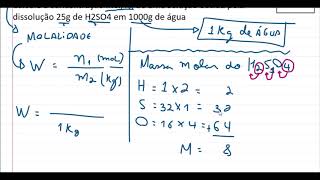 dissolução 25g de H2SO4 em 1000g de água
MOLALIDADE
1 Kg de ÁGUA
W = n1 (mol)
m2 (kg)
Massa molar do H2SO4
H = 1 x 2 = 2
S = 32 x 1 = 32
O = 16 x 4 = +64
M = 8
W =
1 kg